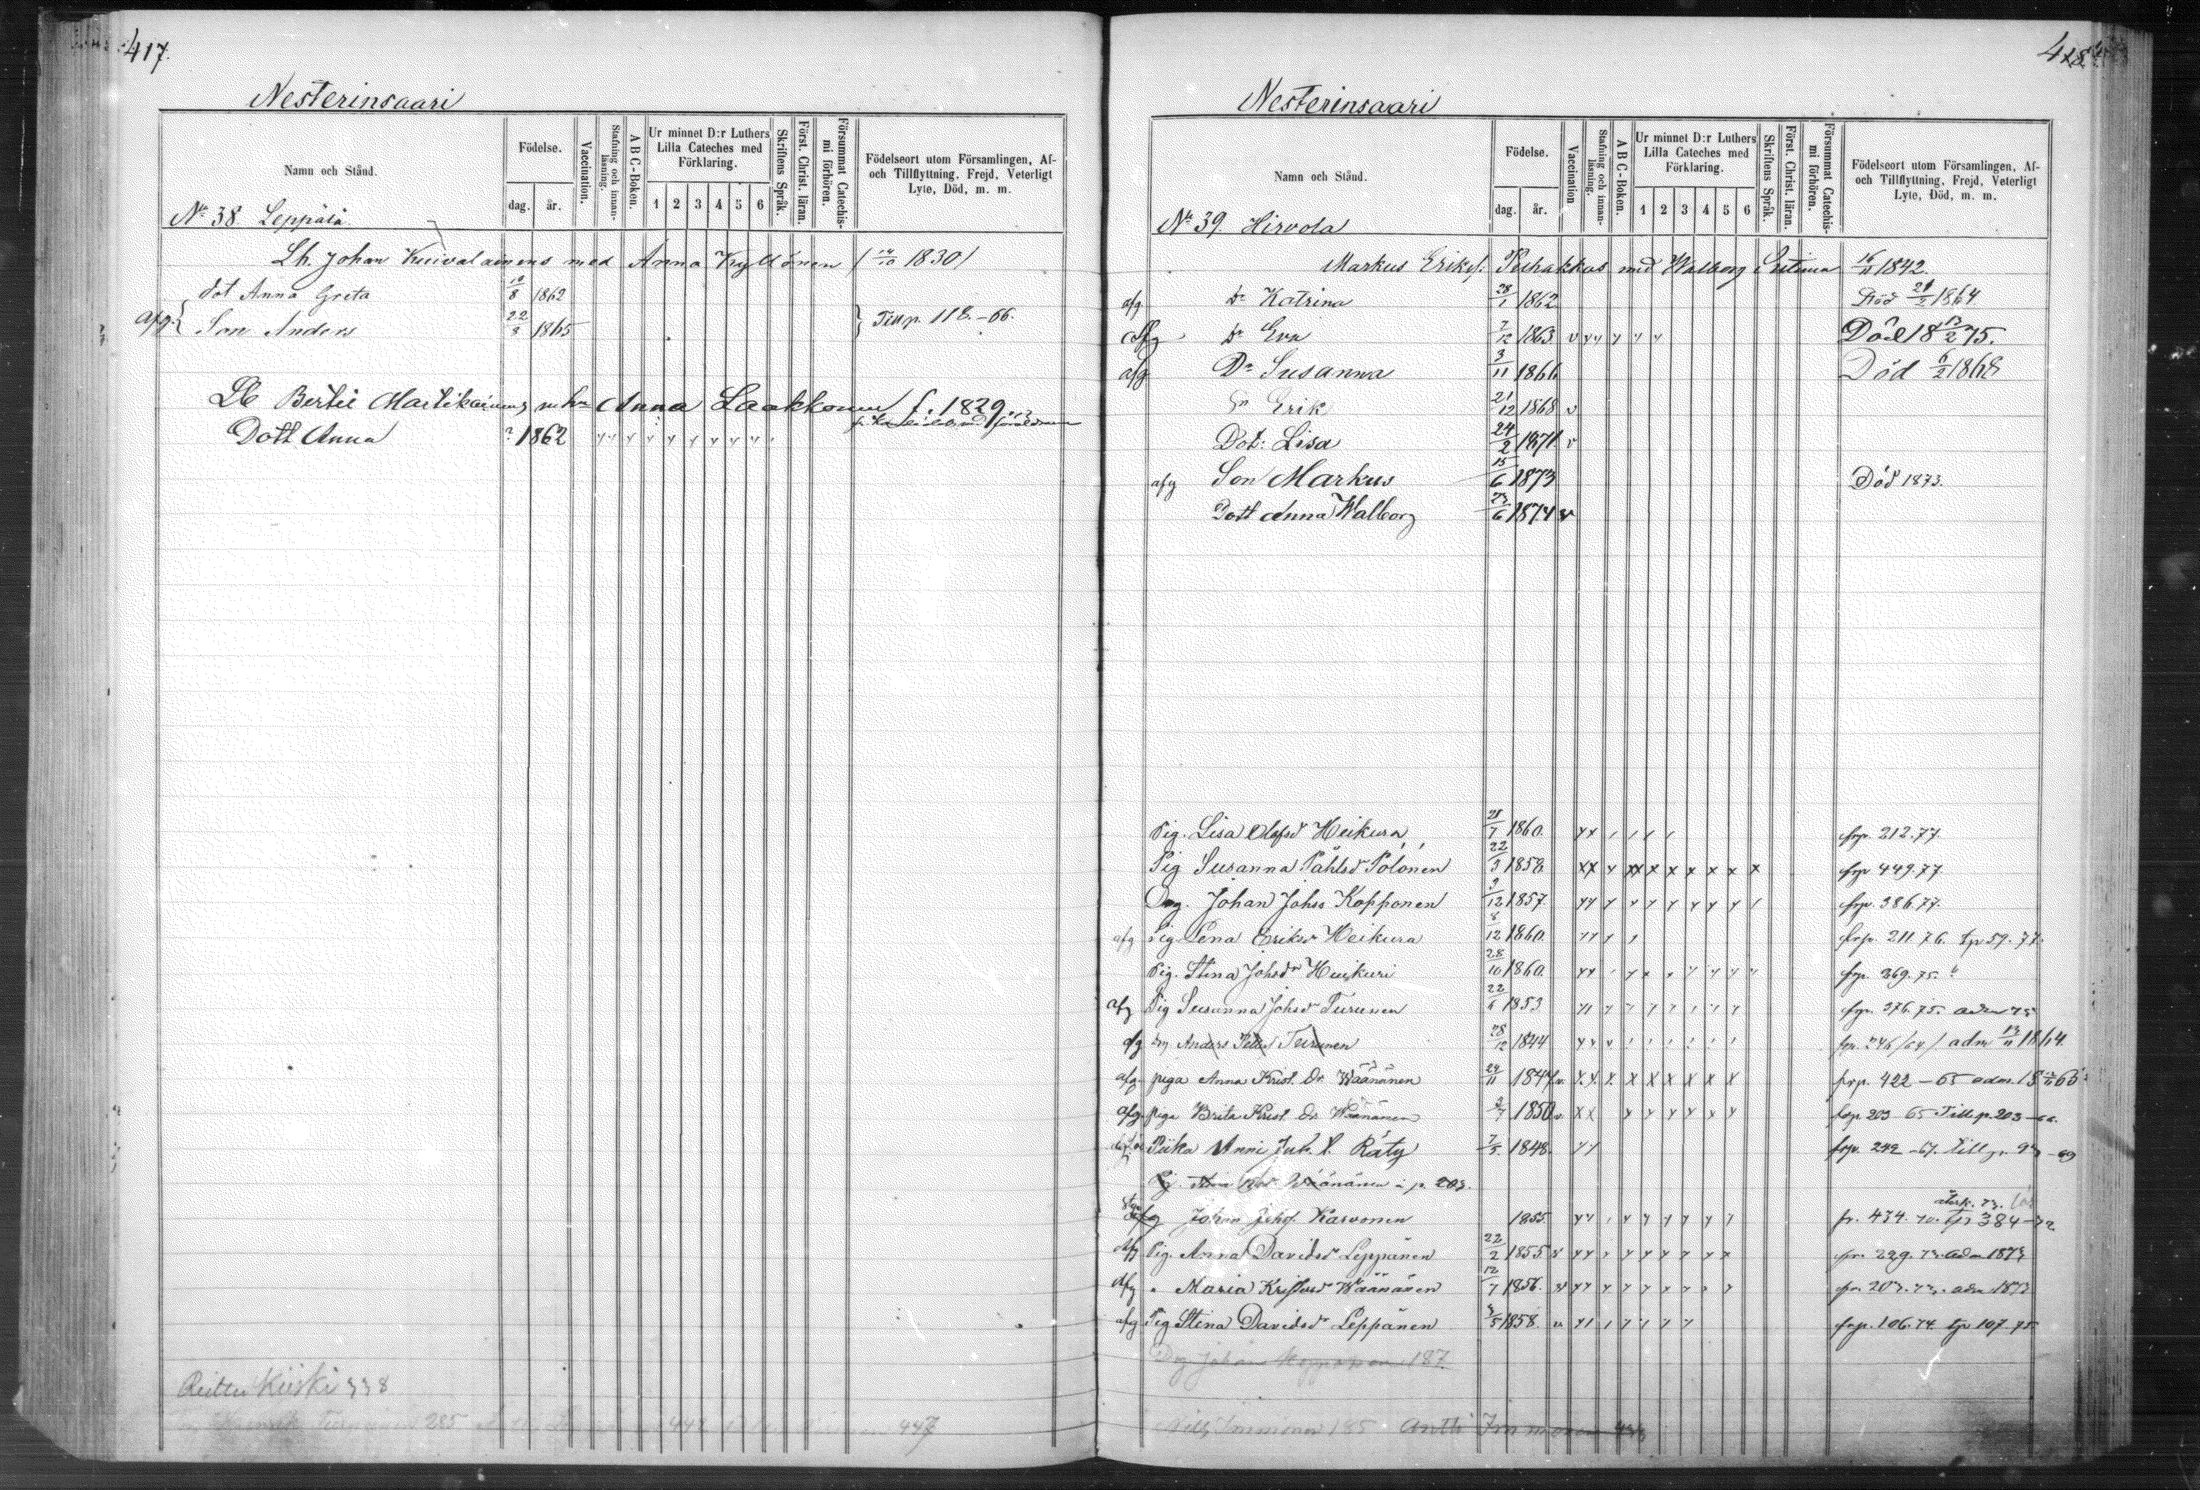 417.
Nesterinsaari
Namn och Stånd.
Födelse.
dag. år.
Vaccination.
Stafning och innan-läsning.
A B C-Boken.
Ur minnet D:r Luthers Lilla Cateches med Förklaring.
1 2 3 4 5 6
Skriftens Språk.
Först. Christ. läran.
Försummat Catechis-mi förhören.
Födelseort utom Församlingen, Af- och Tillflyttning, Frejd, Veterligt Lyte, Död, m. m.
No 38 Leppälä
Lh. Johan Kuivalainens med Anna Kyllönen 1830
dot Anna Greta 8 1862
afg. Son Anders 22/8 1865 Till p. 118.-66.
Bertil Martikainens Anna Laakkonen f. 1829
Dott Anna ? 1862
Kiiski 338
285 442 447
418
Nesterinsaari
Namn och Stånd.
Födelse.
dag. år.
Vaccination
Stafning och innan-läsning.
A B C-Boken.
Ur minnet D:r Luthers Lilla Cateches med Förklaring.
1 2 3 4 5 6
Skriftens Språk.
Först. Christ. läran.
Försummat Catechis-mi förhören.
Födelseort utom Församlingen, Af- och Tillflyttning, Frejd, Veterligt Lyte, Död, m. m.
No 39. Hirvola
Markus Eriks. med Walborg 16/11 1842.
afg Dr Katrina 28/1 1862 Död 21/2 1864
afg Dr Eva 7/12 1863 v Död 18 13/2 75.
afg Dr Susanna 3/11 1866 Död 6/2 1868
Sn Erik 21/12 1868 v
Dot: Lisa 24/2 1871 v
afg Son Markus 15/6 1873 Död 1873.
Dott Anna Walborg 23/6 1874 v
Pig. Lisa Olofsd Heikura 21/7 1860. frp. 212.77.
Pig Susanna Påhlsd Polonen 22/9 1858 frp 449.77
Drg. Johan Johss Kopponen 9/12 1857. frp. 386.77.
afg Pig Lena Eriksd Heikura 8/12 1860. frp. 211.76. tp 59.77.
Pig. Stina Johsdr 28/10 1860. frp. 369.75.
afg Pig Susanna Johsd Turunen 22/6 1853 frp. 376.75.
afg Anders Turunen 28/12 1844
afg. piga Anna Krist. Dr. Wäänänen 29/11 1847 v. frp. 422-65
afg. piga Brita Krist. Dr. Wäänänen 2/7 1850 v frp 203 65 Till p. 203-66.
Piika Anni Juh. t. Räty 7/5 1848. frp. 242-67.
Wäänänen i p. 203.
afg Johan Johs. Karvonen 1855. fr. 434.70. tp 384-72
afg Pig. Anna Davidsd Leppänen 22/2 1855 v frp. 229.73. adm 1873
afg " Maria Kristersd Wäänänen 12/7 1856. v frp. 203.73. adm 1873
afg Pig Stina Davidsdr Leppänen 3/5 1858. v frp. 106.74 tp 107.75
Drg Johan Kopponen 187
Immonen 185 Antti Immonen